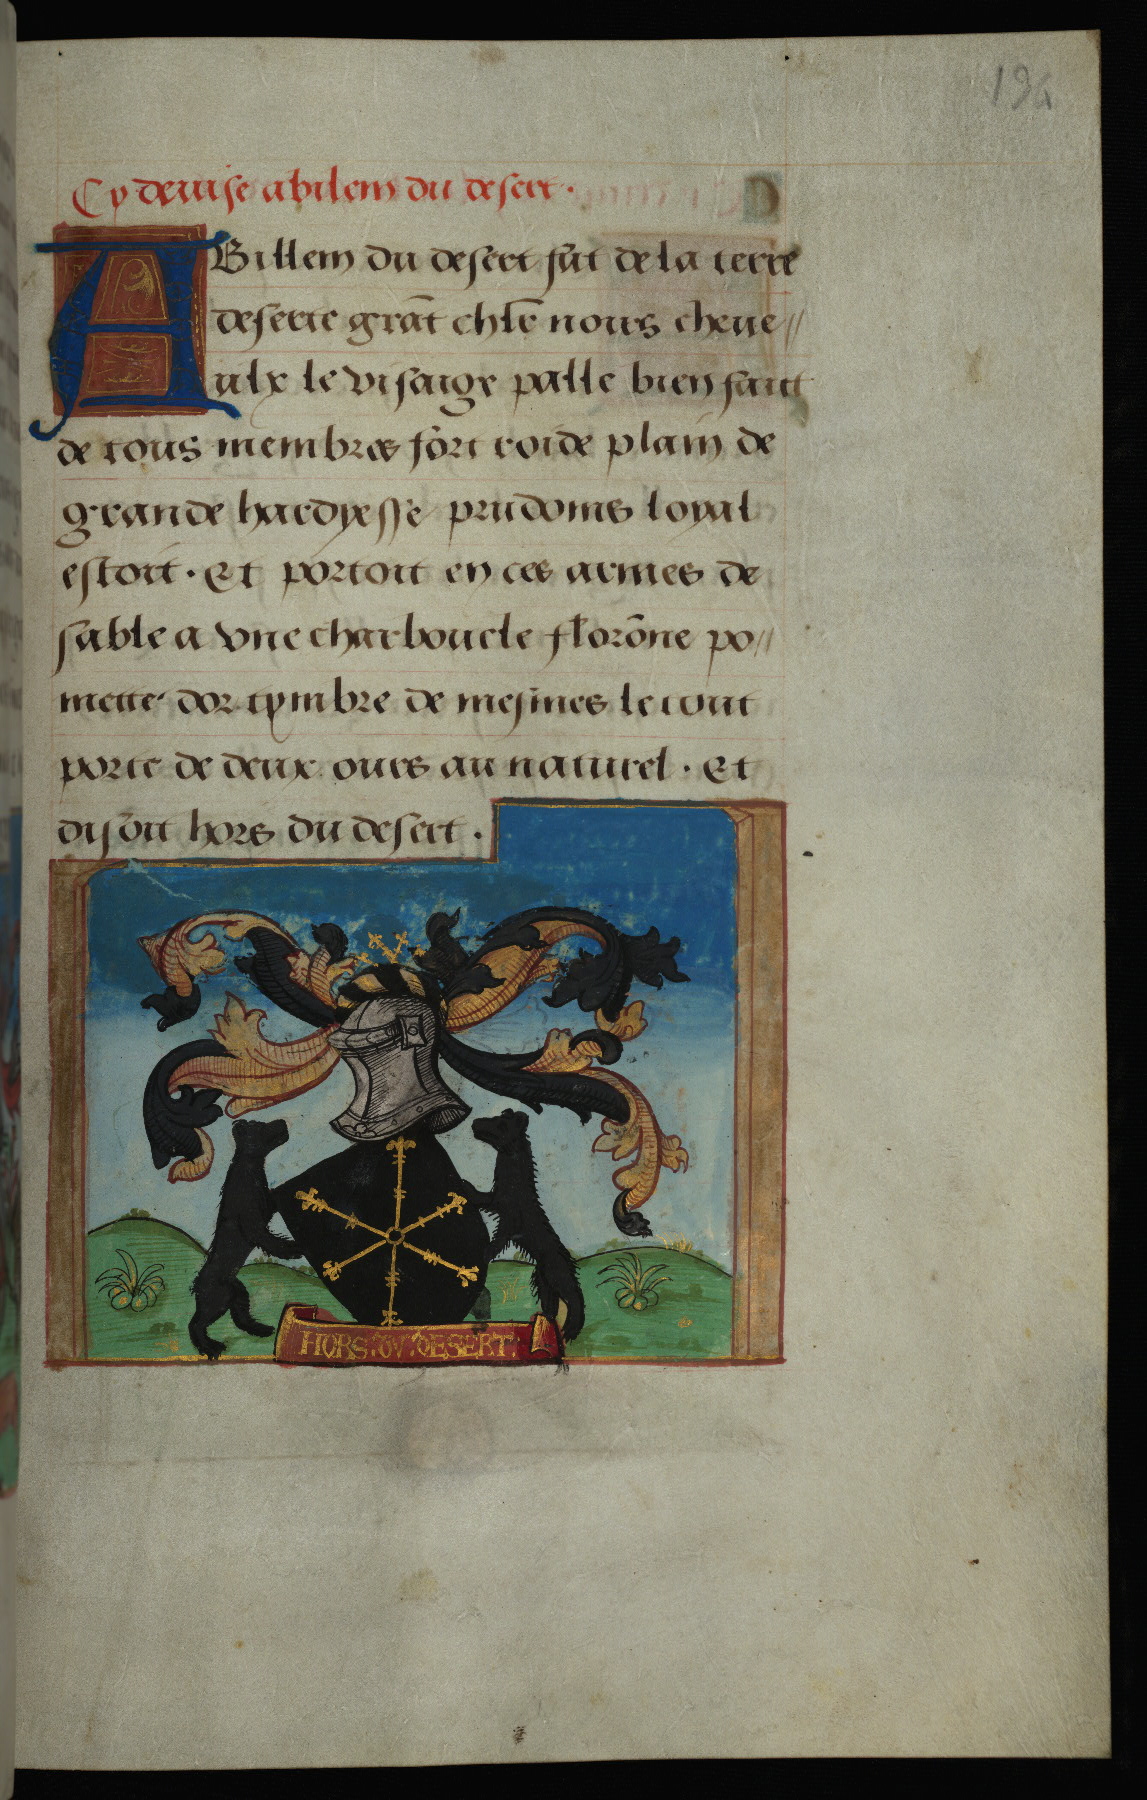 194
Cy deuise abilem du desert.
ABillem du desert fut de la terre
deserte grãt chlr̃ noirs cheue//
ulx le visaige palle bien faict
de tous membres fort roide plain de
grande hardyesse prudoms loyal
estoit. Et portoit en ces armes de
sable a vne charboucle florõne po//
mette dor tymbre de mesmes le tout
porte de deux ours au naturel. Et
disoit hors du desert.
HORS.DV.DESERT.